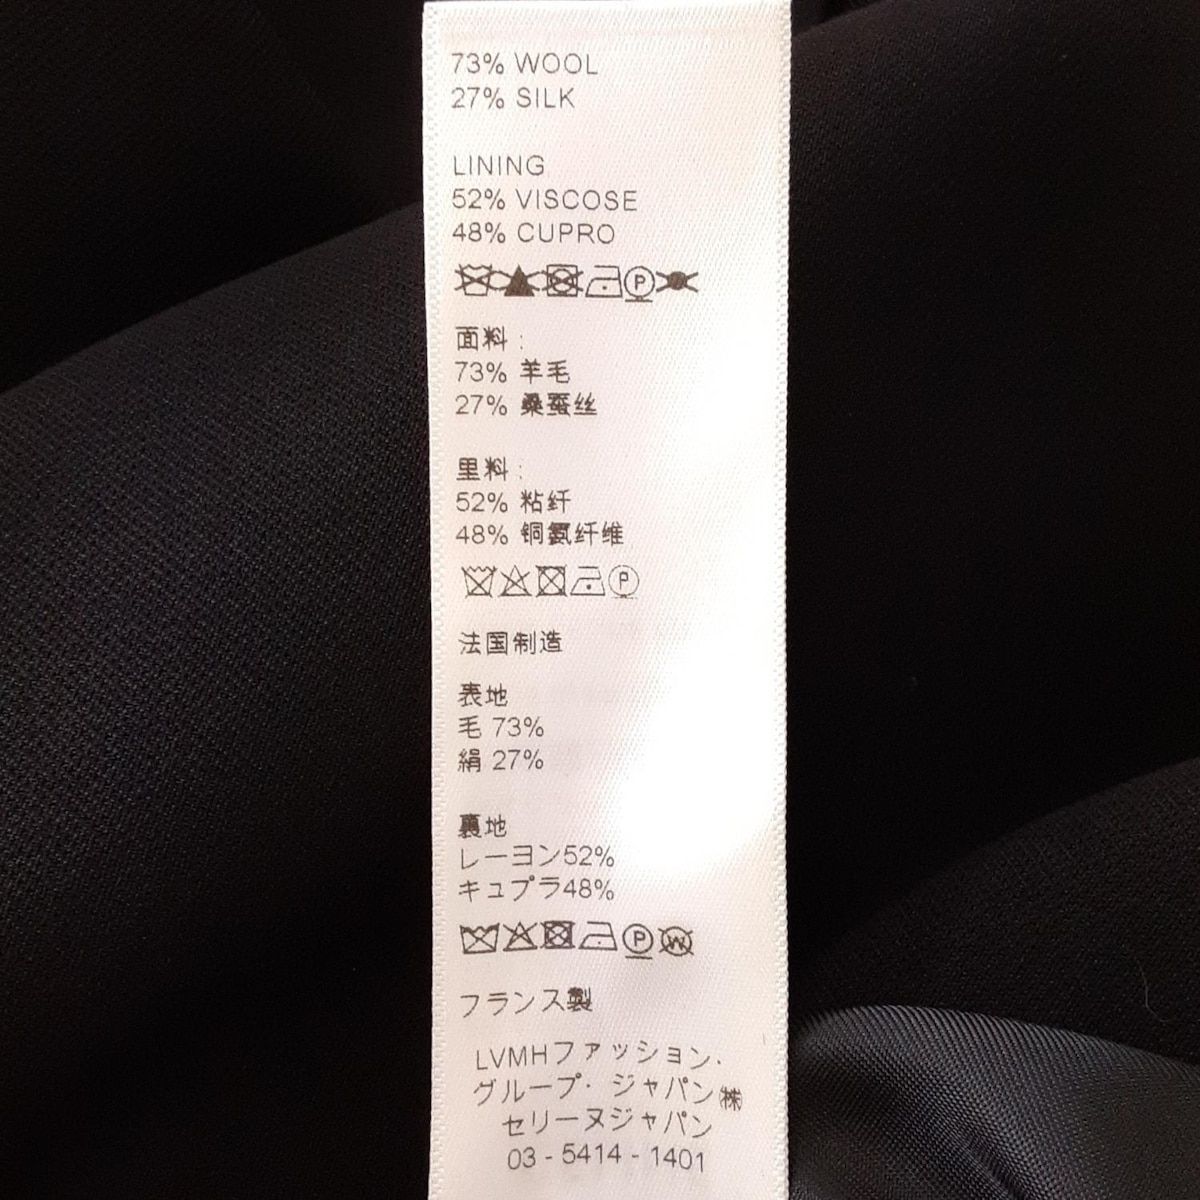 73% WOOL
27% SILK
LINING
52% VISCOSE
48% CUPRO
P
面料:
73% 羊毛
27% 桑蚕丝
里料:
52% 粘纤
48% 铜氨纤维
P
法国制造
表地
毛 73%
絹 27%
裏地
レーヨン52%
キュプラ48%
P W
フランス製
LVMHファッション・
グループ・ジャパン㈱
セリーヌジャパン
03 - 5414 - 1401